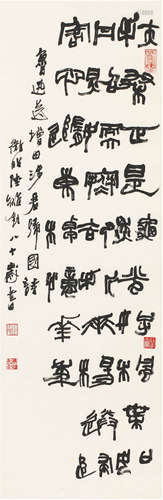 扶桑正是龝光好楓葉如
丹照嫩寒却折垂楊送
歸客心隨東棹憶華年
魯迅送增田涉君歸國詩
微昭陸維釗八十歲書